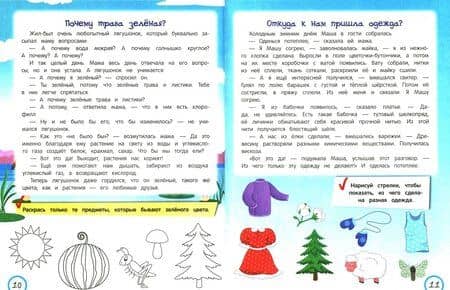 Почему трава зелёная?
Жил-был очень любопытный лягушонок, который буквально за-
сыпал маму вопросами:
— А почему вода мокрая? А почему солнышко круглое?
А почему?.. А почему?..
И так целый день. Мама весь день отвечала на его вопро-
сы, но и она устала. А лягушонок не унимается:
— А почему я зелёный? — спросил он.
— Ты зелёный, потому что зелёная трава и листики. Тебе
в них легче спрятаться.
— А почему зелёные трава и листики?
— А потому, — ответила мама, — что в них есть хлоро-
филл.
— Ну и не было бы его, что бы изменилось? — не уни-
мался лягушонок.
— Как это «не было бы»? — возмутилась мама. — Да это
именно благодаря ему растение на свету из воды и углекисло-
го газа создаёт белок, крахмал, сахар. Что бы мы тогда ели?
— Вот это да! Выходит, растения нас кормят!
— Ещё они помогают нам дышать, забирают из воздуха
углекислый газ, а возвращают кислород.
Теперь лягушонок даже гордился, что он зелёный, такого же
цвета, как и растения — его любимые друзья.
Раскрась только те предметы, которые бывают зелёного цвета.
10
Откуда к нам пришла одежда?
Холодным зимним днём Маша в гости собралась.
— Оденься потеплее, — сказала ей мама.
— Я Машу согрею, — заволновалась майка, — я из нежно-
го хлопка сделана. Выросли в поле цветочки-бутончики, а потом
на их месте коробочки с ватой появились. Вату собрали, нитки
из неё сплели, ткань соткали, раскроили её и майку сшили.
— А я ещё интересней получился, — вмешался свитер. —
Гулял по полю барашек с густой и тёплой шёрсткой. Потом её
состригли, в пряжу сплели. Из неё меня и связали. Я Машу
согрею.
— Я из бабочки появилось, — сказало платье. — Да-
да, не удивляйтесь. Есть такая бабочка — тутовый шелкопряд,
её личинки обматывают себя красивой прочной нитью. Из этой
нити получается блестящий шёлк.
— А нас из ёлки сделали, — вмешались варежки. — Дре-
весину растворяли разными химическими веществами. Получилась
вискоза.
«Вот это да! — подумала Маша, услышав этот разговор. —
Из чего только эту одежду не делают!» И оделась потеплее.
Нарисуй стрелки, чтобы
показать, из чего сдела-
на разная одежда.
11